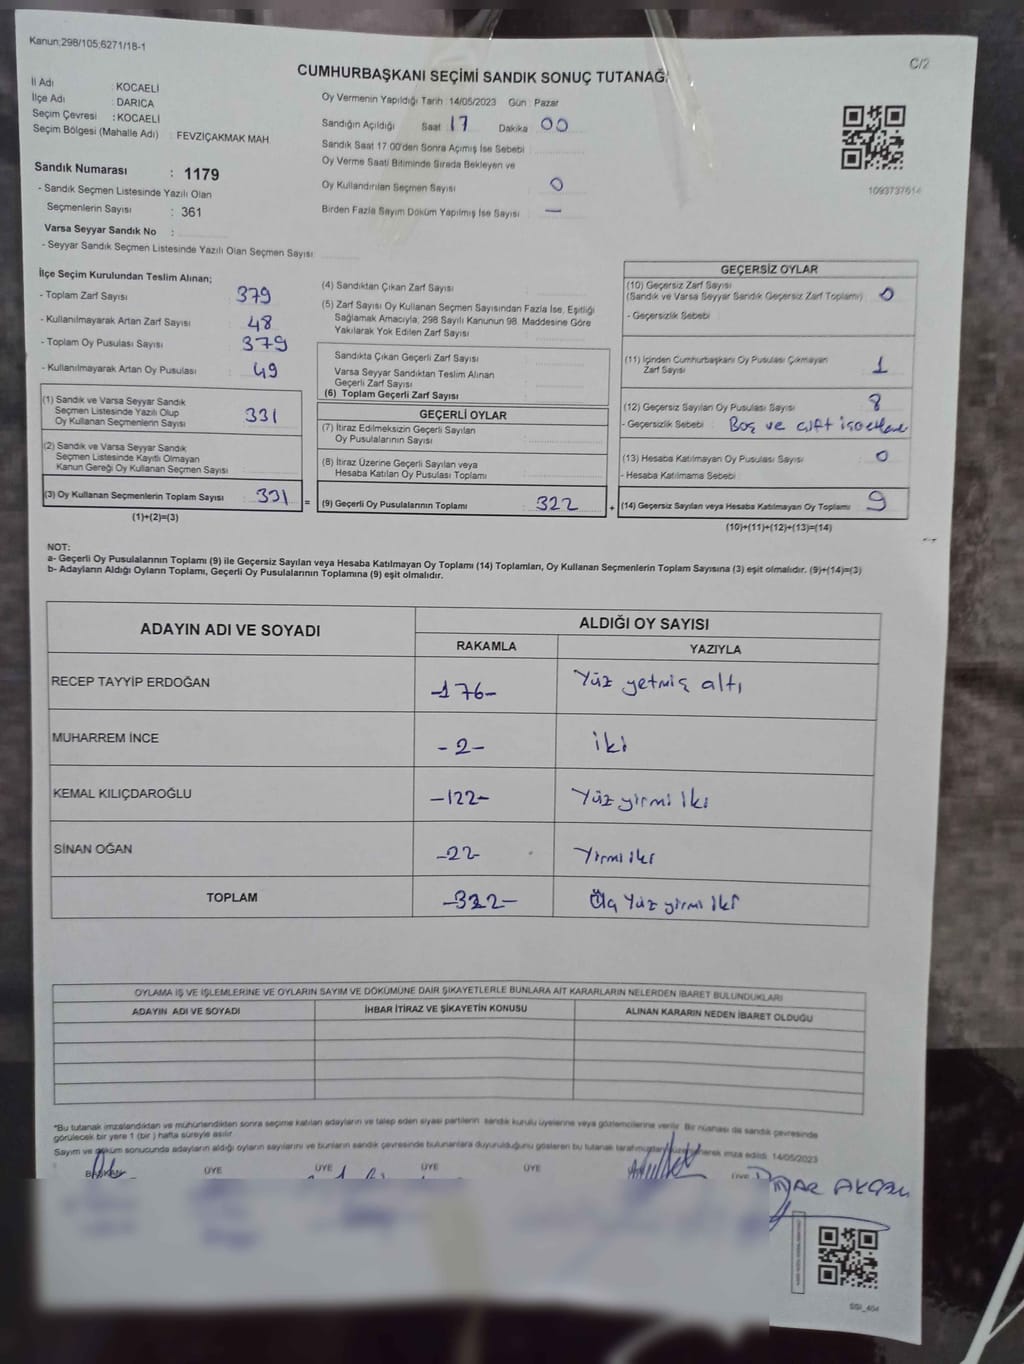 Kanun;298/105;6271/18-1
C/2
CUMHURBAŞKANI SEÇİMİ SANDIK SONUÇ TUTANAĞI
İl Adı : KOCAELİ
İlçe Adı : DARICA
Seçim Çevresi : KOCAELİ
Seçim Bölgesi (Mahalle Adı) : FEVZİÇAKMAK MAH
Sandık Numarası : 1179
- Sandık Seçmen Listesinde Yazılı Olan
Seçmenlerin Sayısı : 361
Varsa Seyyar Sandık No :
- Seyyar Sandık Seçmen Listesinde Yazılı Olan Seçmen Sayısı:
Oy Vermenin Yapıldığı Tarih :14/05/2023 Gün : Pazar
Sandığın Açıldığı Saat 17 Dakika 00
Sandık Saat 17:00'den Sonra Açımış İse Sebebi
Oy Verme Saati Bitiminde Sırada Bekleyen ve
Oy Kullandırılan Seçmen Sayısı 0
Birden Fazla Sayım Döküm Yapılmış İse Sayısı —
İlçe Seçim Kurulundan Teslim Alınan;
- Toplam Zarf Sayısı : 379
- Kullanılmayarak Artan Zarf Sayısı : 48
- Toplam Oy Pusulası Sayısı : 379
- Kullanılmayarak Artan Oy Pusulası : 49
(1) Sandık ve Varsa Seyyar Sandık
Seçmen Listesinde Yazılı Olup
Oy Kullanan Seçmenlerin Sayısı : 331
(2) Sandık ve Varsa Seyyar Sandık
Seçmen Listesinde Kayıtlı Olmayan
Kanun Gereği Oy Kullanan Seçmen Sayısı :
(3) Oy Kullanan Seçmenlerin Toplam Sayısı : 331 =
(1)+(2)=(3)
(4) Sandıktan Çıkan Zarf Sayısı :
(5) Zarf Sayısı Oy Kullanan Seçmen Sayısından Fazla İse, Eşitliği
Sağlamak Amacıyla; 298 Sayılı Kanunun 98. Maddesine Göre
Yakılarak Yok Edilen Zarf Sayısı :
Sandıkta Çıkan Geçerli Zarf Sayısı :
Varsa Seyyar Sandıktan Teslim Alınan
Geçerli Zarf Sayısı :
(6) Toplam Geçerli Zarf Sayısı :
GEÇERLİ OYLAR
(7) İtiraz Edilmeksizin Geçerli Sayılan
Oy Pusulalarının Sayısı :
(8) İtiraz Üzerine Geçerli Sayılan veya
Hesaba Katılan Oy Pusulası Toplamı :
(9) Geçerli Oy Pusulalarının Toplamı : 322 +
GEÇERSİZ OYLAR
(10) Geçersiz Zarf Sayısı
(Sandık ve Varsa Seyyar Sandık Geçersiz Zarf Toplamı) : 0
- Geçersizlik Sebebi :
(11) İçinden Cumhurbaşkanı Oy Pusulası Çıkmayan
Zarf Sayısı : 1
(12) Geçersiz Sayılan Oy Pusulası Sayısı : 8
- Geçersizlik Sebebi : Boş ve çift
(13) Hesaba Katılmayan Oy Pusulası Sayısı : 0
- Hesaba Katılmama Sebebi :
(14) Geçersiz Sayılan veya Hesaba Katılmayan Oy Toplamı : 9
(10)+(11)+(12)+(13)=(14)
NOT:
a- Geçerli Oy Pusulalarının Toplamı (9) ile Geçersiz Sayılan veya Hesaba Katılmayan Oy Toplamı (14) Toplamları, Oy Kullanan Seçmenlerin Toplam Sayısına (3) eşit olmalıdır. (9)+(14)=(3)
b- Adayların Aldığı Oyların Toplamı, Geçerli Oy Pusulalarının Toplamına (9) eşit olmalıdır.
ADAYIN ADI VE SOYADI
ALDIĞI OY SAYISI
RAKAMLA YAZIYLA
RECEP TAYYİP ERDOĞAN -176- Yüz yetmiş altı
MUHARREM İNCE -2- iki
KEMAL KILIÇDAROĞLU -122- Yüz yirmi iki
SİNAN OĞAN -22- Yirmi iki
TOPLAM -322- Üç Yüz yirmi iki
OYLAMA İŞ VE İŞLEMLERİNE VE OYLARIN SAYIM VE DÖKÜMÜNE DAİR ŞİKAYETLERLE BUNLARA AİT KARARLARIN NELERDEN İBARET BULUNDUKLARI
ADAYIN ADI VE SOYADI İHBAR İTİRAZ VE ŞİKAYETİN KONUSU ALINAN KARARIN NEDEN İBARET OLDUĞU
*Bu tutanak imzalandıktan ve mühürlendikten sonra seçime katılan adayların ve talep eden siyasi partilerin sandık kurulu üyelerine veya gözlemcilerine verilir. Bir nüshası da sandık çevresinde
görülecek bir yere 1 (bir ) hafta süreyle asılır.
Sayım ve döküm sonucunda adayların aldığı oyların sayılarını ve bunların sandık çevresinde bulunanlara duyurulduğunu gösteren bu tutanak imza edildi. 14/05/2023
BAŞKAN ÜYE ÜYE ÜYE ÜYE ÜYE
SSİ_464